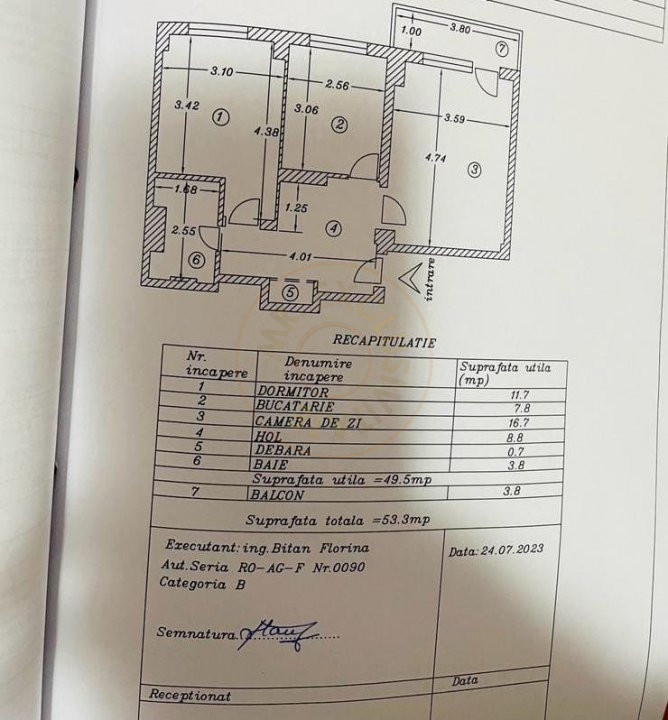 3.80
1.00
7
3.10
2.56
3.42
3.06
3.59
1
2
4.38
4.74
3
1.68
1.25
2.55
4
4.01
6
5
intrare
RECAPITULATIE
Nr. incapere Denumire incapere Suprafata utila (mp)
1 DORMITOR 11.7
2 BUCATARIE 7.8
3 CAMERA DE ZI 16.7
4 HOL 8.8
5 DEBARA 0.7
6 BAIE 3.8
Suprafata utila =49.5mp
7 BALCON 3.8
Suprafata totala =53.3mp
Executant: ing.Bitan Florina
Data: 24.07.2023
Aut.Seria RO-AG-F Nr.0090
Categoria B
Semnatura
Receptionat
Data